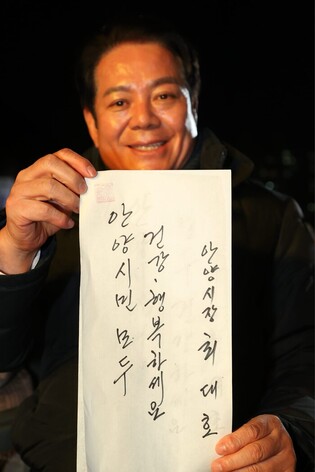 안양시민 모두
건강·행복하세요
안양시장 최 대 호